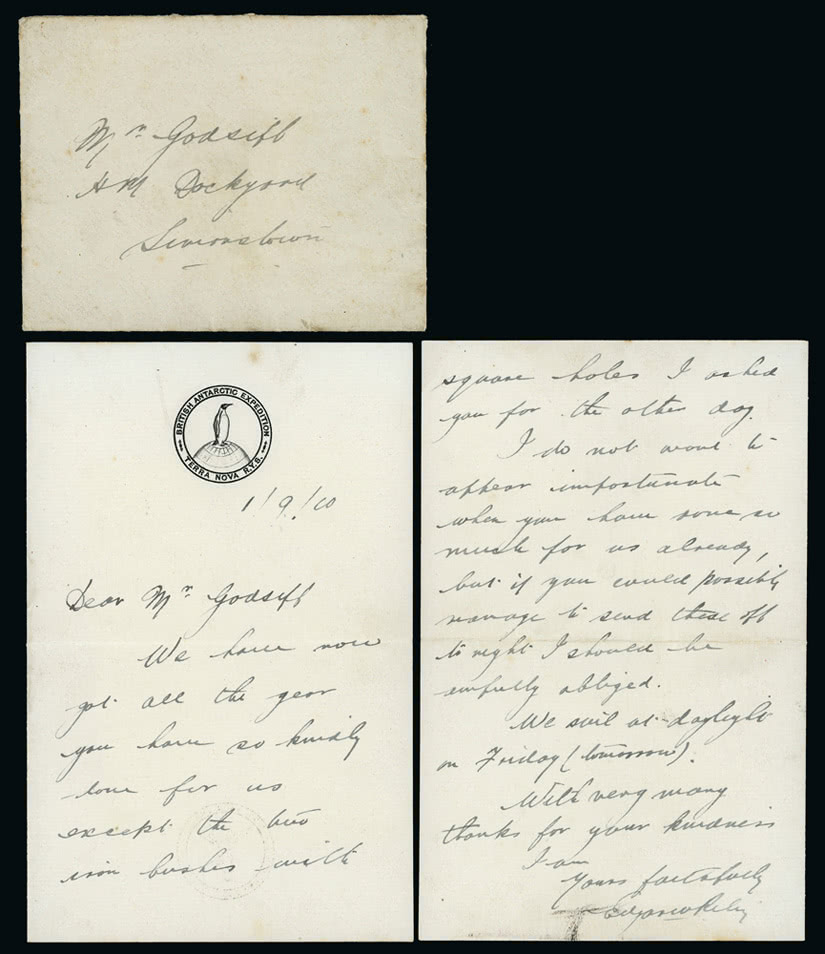 Mr Godsift
HM Dockyard
Simonstown
BRITISH ANTARCTIC EXPEDITION
TERRA NOVA R.Y.S.
1/9/10
Dear Mr Godsift
We have now
got all the gear
you have so kindly
done for us
except the two
iron bushes with
square holes I asked
you for the other day.
I do not want to
appear importunate
when you have done so
much for us already,
but if you could possibly
manage to send these off
to night I should be
awfully obliged.
We sail at daylight
on Friday (tomorrow).
With very many
thanks for your kindness
I am
Yours faithfully